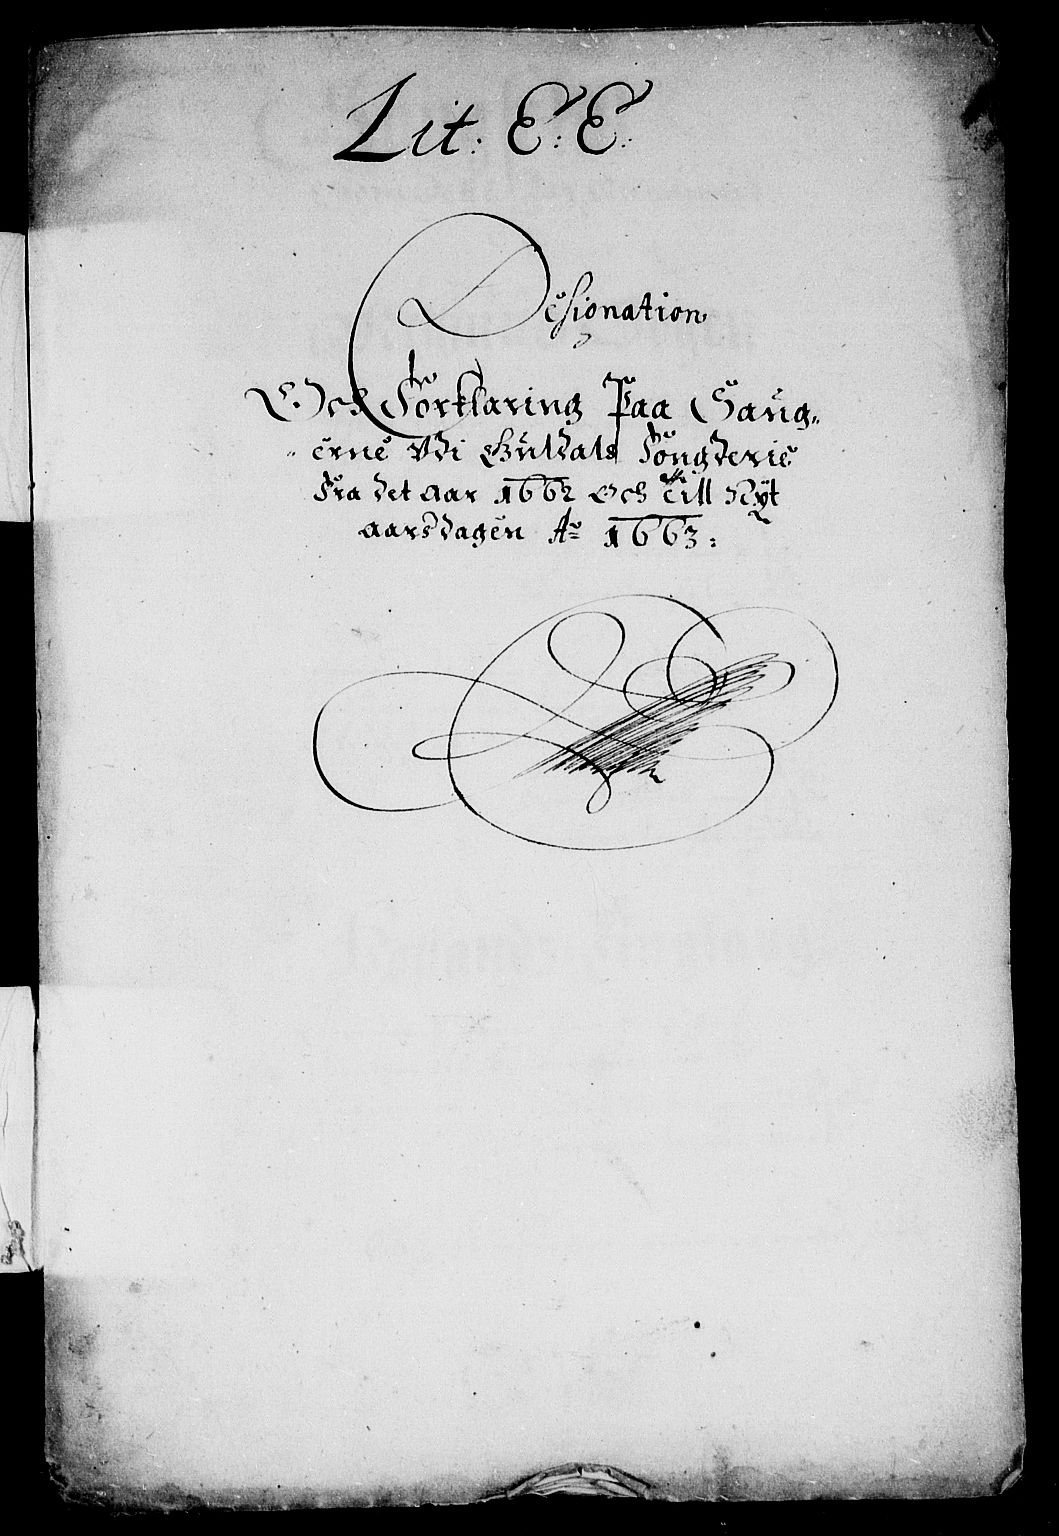 Lit: E: E:
Designation
Och Forklaring Paa Saug„
„erne Vdi Guldals Fougderie
Fra det aar 1662 Och Till Nyt
aarsdagen A° 1663: